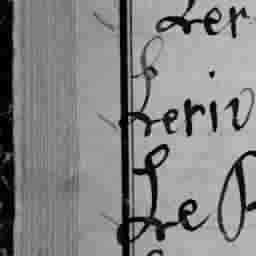 Ler
Leriv
Le R